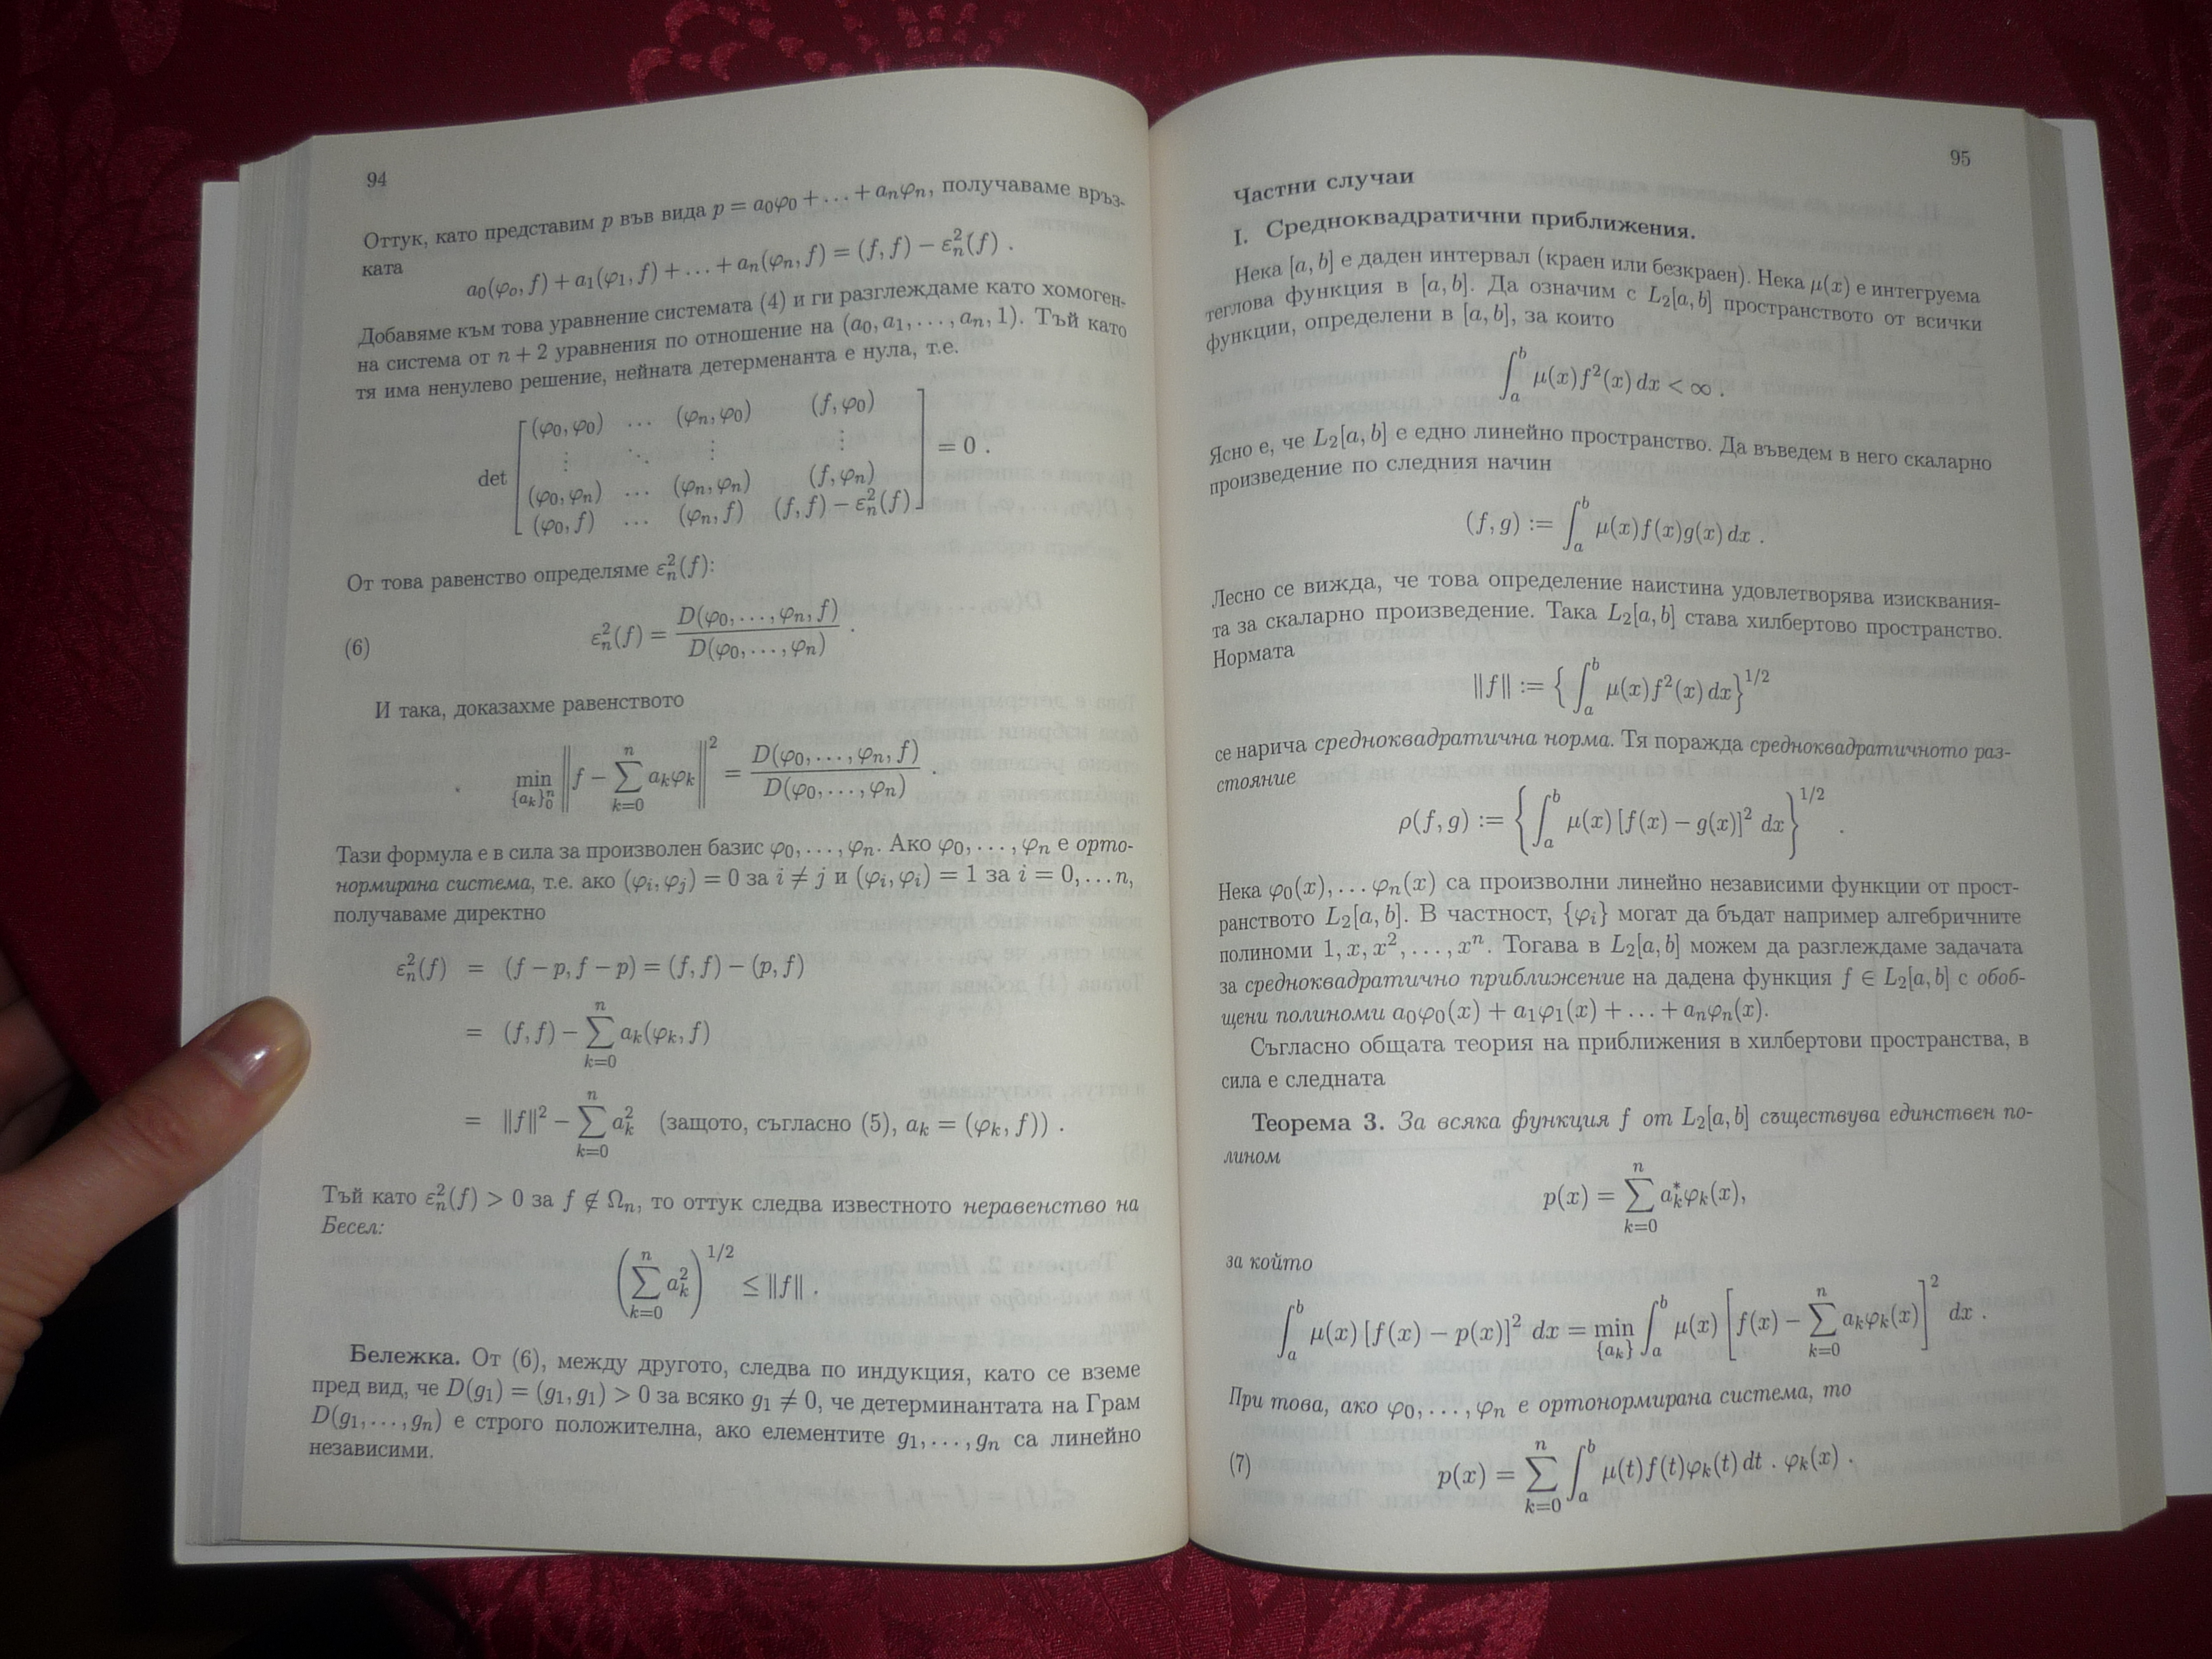 94
Оттук, като представим p във вида p = a₀φ₀ + … + aₙφₙ, получаваме връз-
ката
a₀(φ₀, f) + a₁(φ₁, f) + … + aₙ(φₙ, f) = (f, f) − εₙ²(f) .
Добавяме към това уравнение системата (4) и ги разглеждаме като хомоген-
на система от n + 2 уравнения по отношение на (a₀, a₁, …, aₙ, 1). Тъй като
тя има ненулево решение, нейната детерменанта е нула, т.е.
det [ (φ₀, φ₀) … (φₙ, φ₀) (f, φ₀)
⋮ ⋱ ⋮ ⋮
(φ₀, φₙ) … (φₙ, φₙ) (f, φₙ)
(φ₀, f) … (φₙ, f) (f, f) − εₙ²(f) ] = 0 .
От това равенство определяме εₙ²(f):
(6) εₙ²(f) = D(φ₀, …, φₙ, f) / D(φ₀, …, φₙ) .
И така, доказахме равенството
min_{{aₖ}₀ⁿ} ‖f − ∑_{k=0}^{n} aₖφₖ‖² = D(φ₀, …, φₙ, f) / D(φ₀, …, φₙ) .
Тази формула е в сила за произволен базис φ₀, …, φₙ. Ако φ₀, …, φₙ е орто-
нормирана система, т.е. ако (φᵢ, φⱼ) = 0 за i ≠ j и (φᵢ, φᵢ) = 1 за i = 0, … n,
получаваме директно
εₙ²(f) = (f − p, f − p) = (f, f) − (p, f)
= (f, f) − ∑_{k=0}^{n} aₖ(φₖ, f)
= ‖f‖² − ∑_{k=0}^{n} aₖ² (защото, съгласно (5), aₖ = (φₖ, f)) .
Тъй като εₙ²(f) > 0 за f ∉ Ωₙ, то оттук следва известното неравенство на
Бесел:
(∑_{k=0}^{n} aₖ²)^{1/2} ≤ ‖f‖ .
Бележка. От (6), между другото, следва по индукция, като се вземе
пред вид, че D(g₁) = (g₁, g₁) > 0 за всяко g₁ ≠ 0, че детерминантата на Грам
D(g₁, …, gₙ) е строго положителна, ако елементите g₁, …, gₙ са линейно
независими.
95
Частни случаи
I. Средноквадратични приближения.
Нека [a, b] е даден интервал (краен или безкраен). Нека μ(x) е интегруема
теглова функция в [a, b]. Да означим с L₂[a, b] пространството от всички
функции, определени в [a, b], за които
∫ₐᵇ μ(x)f²(x) dx < ∞ .
Ясно е, че L₂[a, b] е едно линейно пространство. Да въведем в него скаларно
произведение по следния начин
(f, g) := ∫ₐᵇ μ(x)f(x)g(x) dx .
Лесно се вижда, че това определение наистина удовлетворява изисквания-
та за скаларно произведение. Така L₂[a, b] става хилбертово пространство.
Нормата
‖f‖ := {∫ₐᵇ μ(x)f²(x) dx}^{1/2}
се нарича средноквадратична норма. Тя поражда средноквадратичното раз-
стояние
ρ(f, g) := {∫ₐᵇ μ(x) [f(x) − g(x)]² dx}^{1/2} .
Нека φ₀(x), … φₙ(x) са произволни линейно независими функции от прост-
ранството L₂[a, b]. В частност, {φᵢ} могат да бъдат например алгебричните
полиноми 1, x, x², …, xⁿ. Тогава в L₂[a, b] можем да разглеждаме задачата
за средноквадратично приближение на дадена функция f ∈ L₂[a, b] с обоб-
щени полиноми a₀φ₀(x) + a₁φ₁(x) + … + aₙφₙ(x).
Съгласно общата теория на приближения в хилбертови пространства, в
сила е следната
Теорема 3. За всяка функция f от L₂[a, b] съществува единствен по-
лином
p(x) = ∑_{k=0}^{n} aₖ*φₖ(x),
за който
∫ₐᵇ μ(x) [f(x) − p(x)]² dx = min_{{aₖ}} ∫ₐᵇ μ(x) [f(x) − ∑_{k=0}^{n} aₖφₖ(x)]² dx .
При това, ако φ₀, …, φₙ е ортонормирана система, то
(7) p(x) = ∑_{k=0}^{n} ∫ₐᵇ μ(t)f(t)φₖ(t) dt . φₖ(x) .